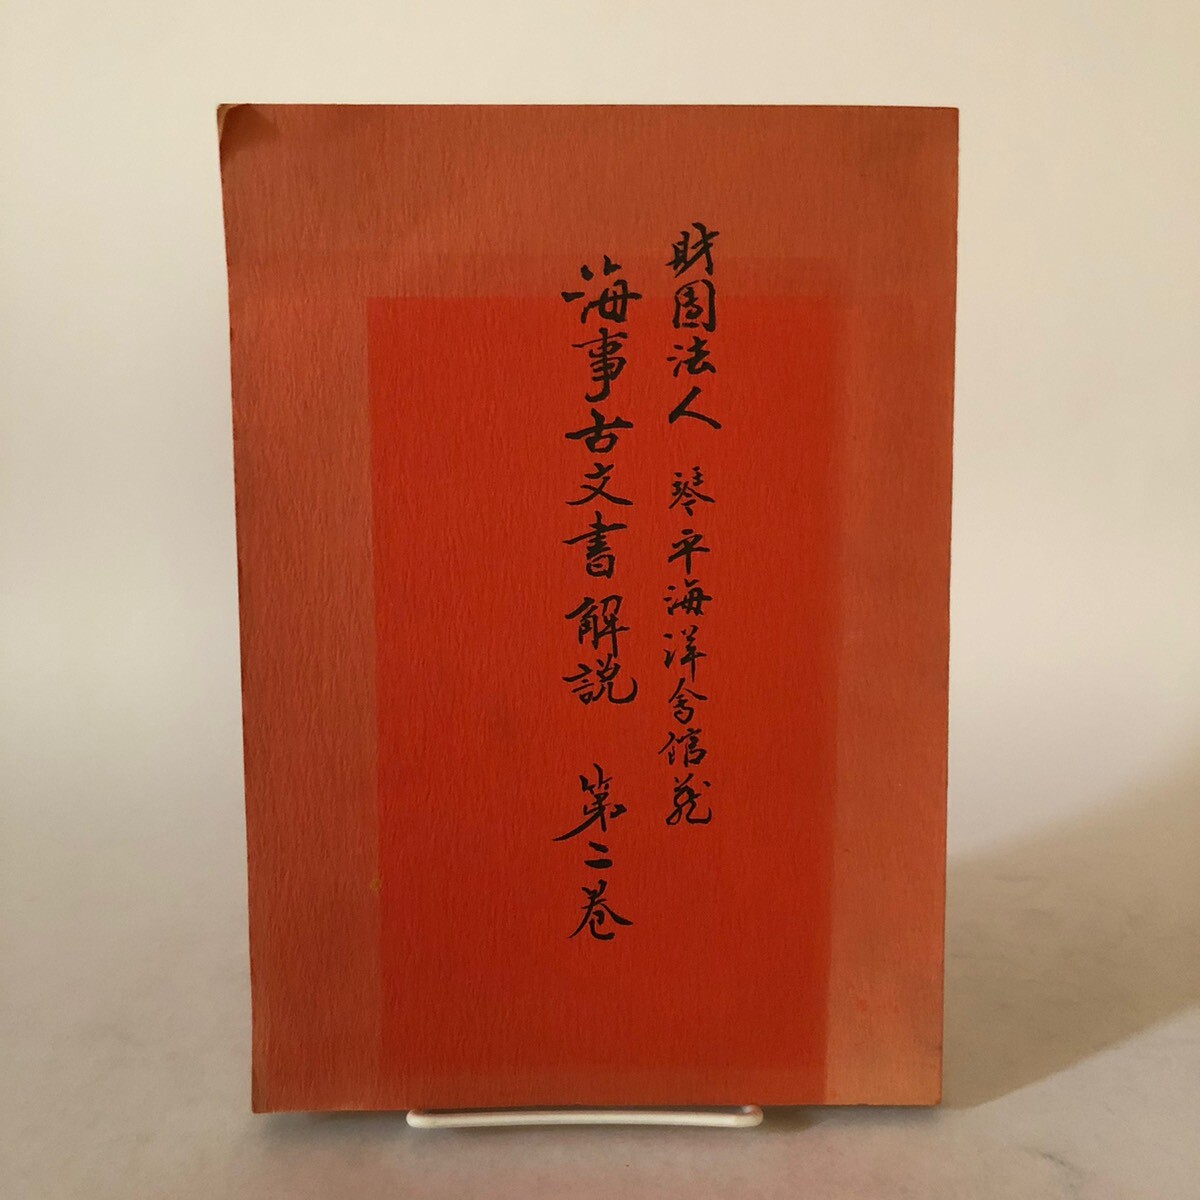 財団法人 琴平海洋会館蔵
海事古文書解説 第二巻